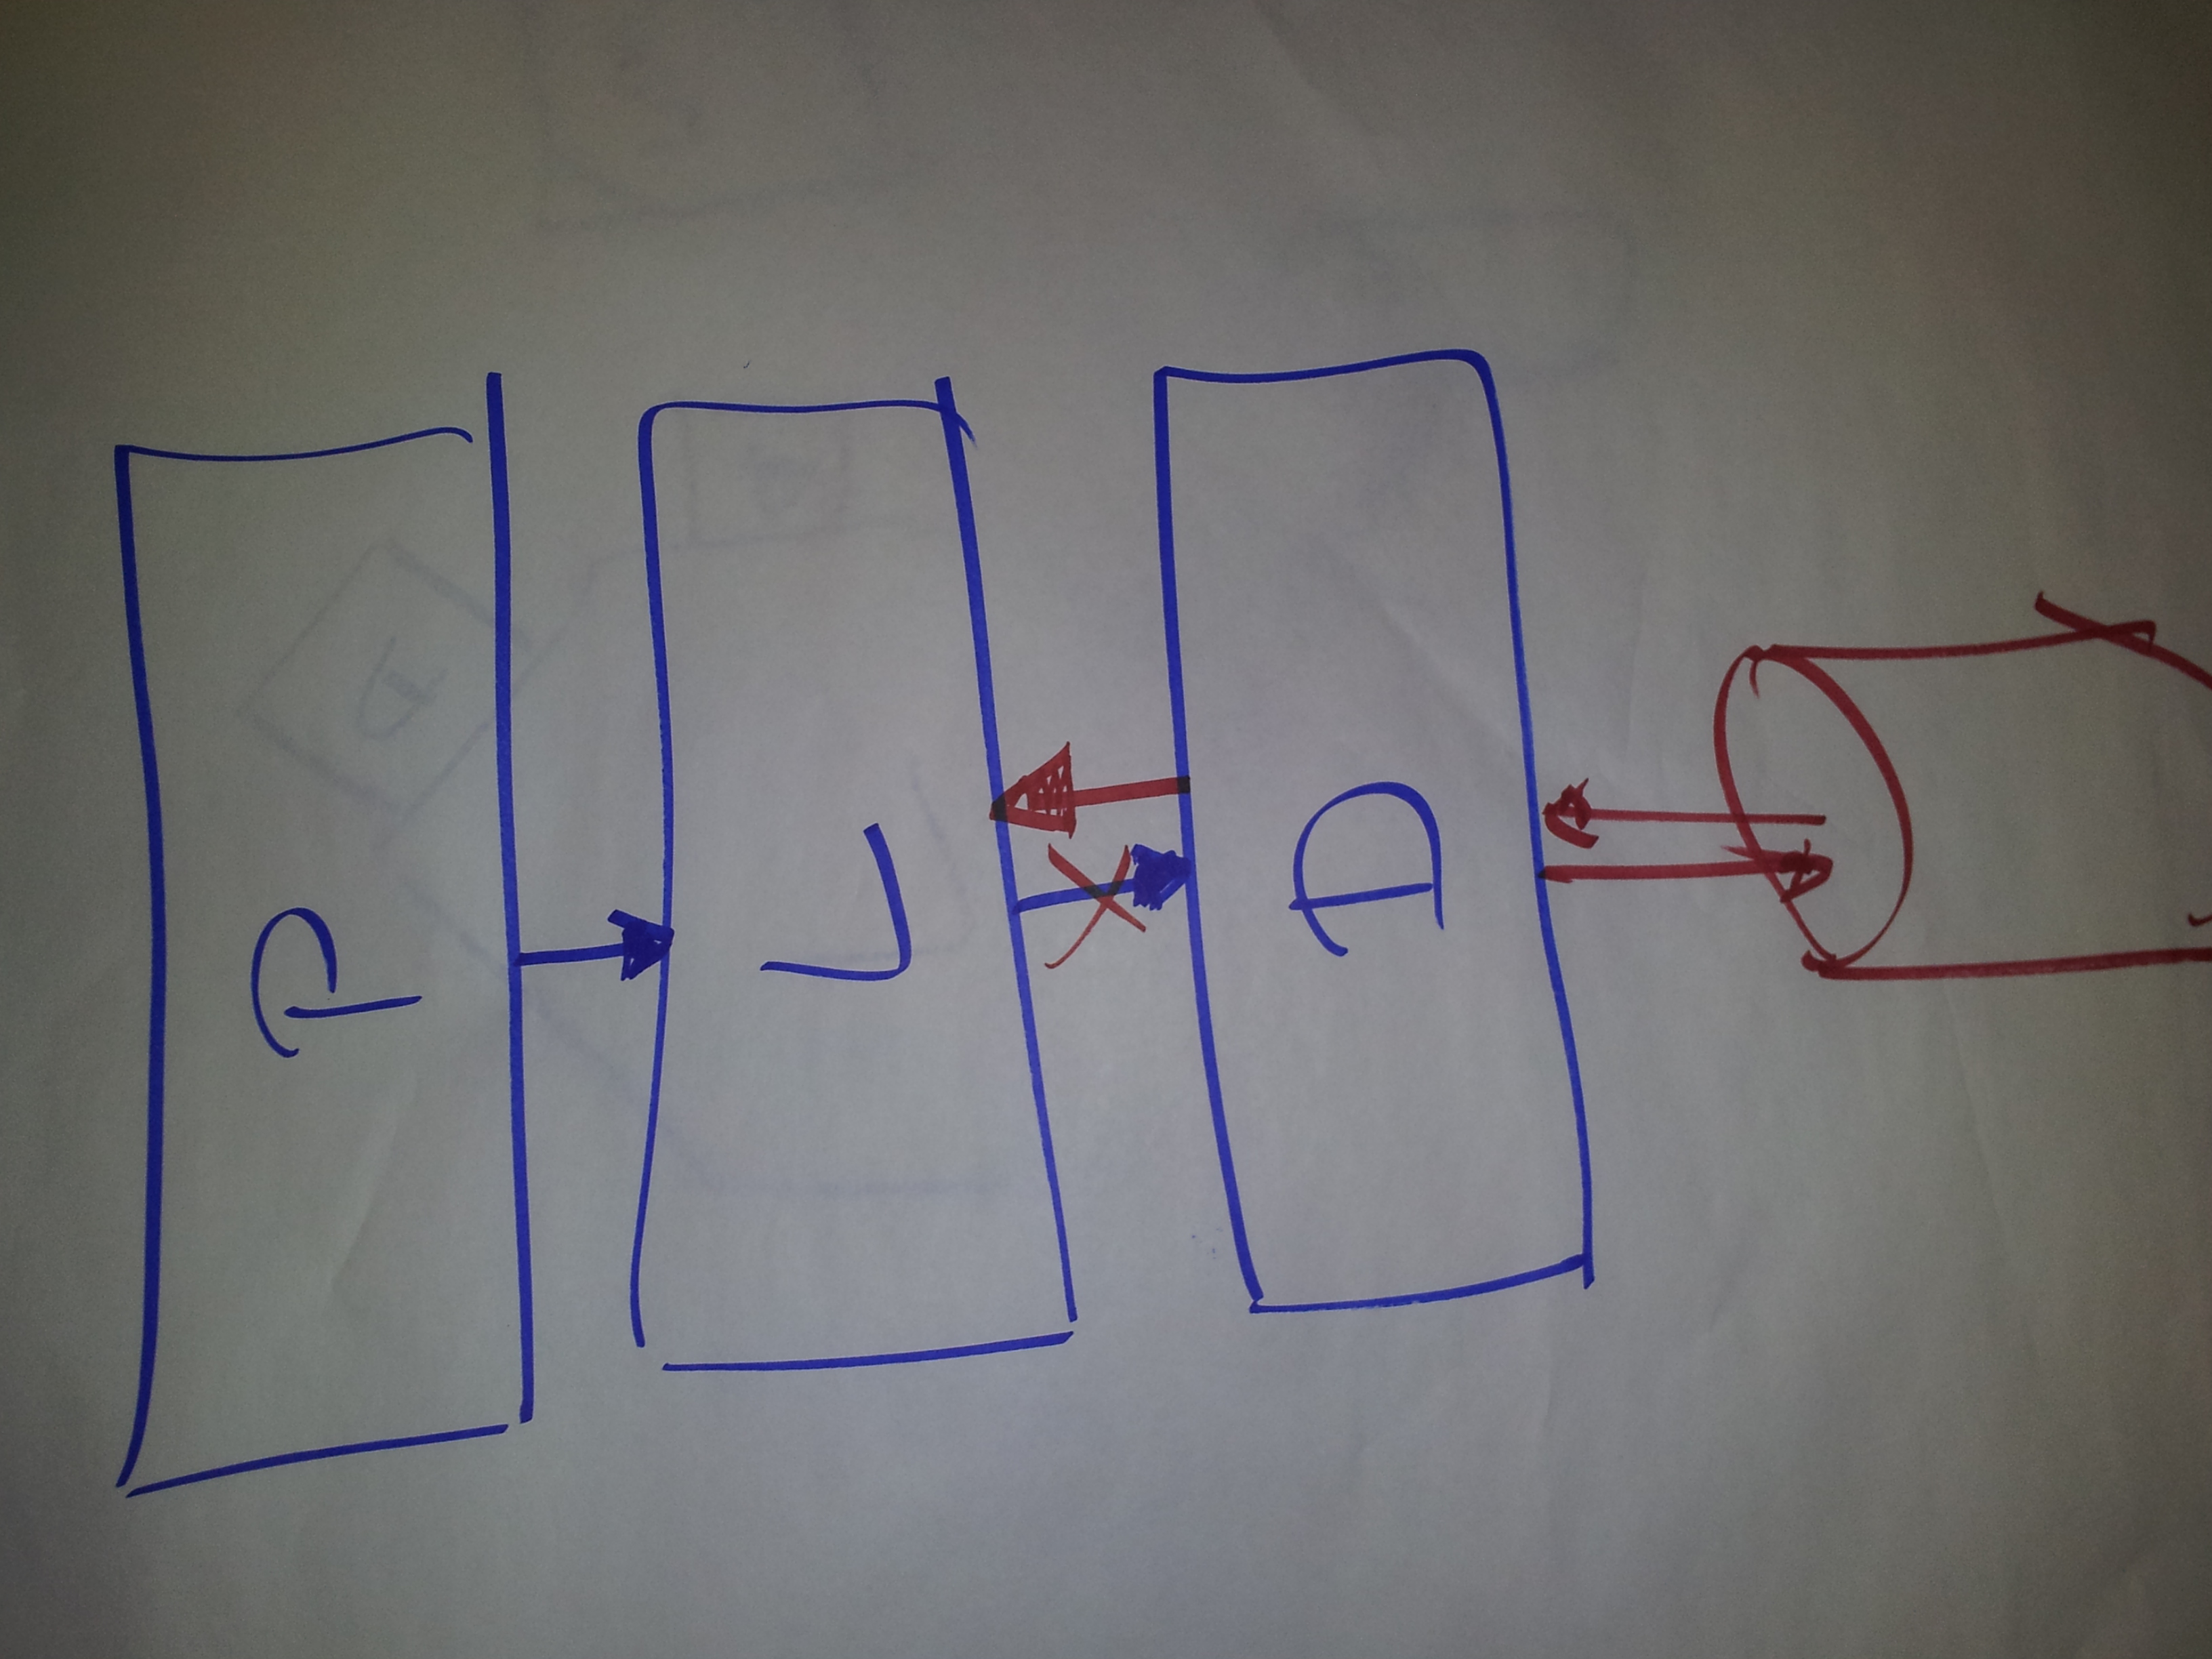 P
L
D